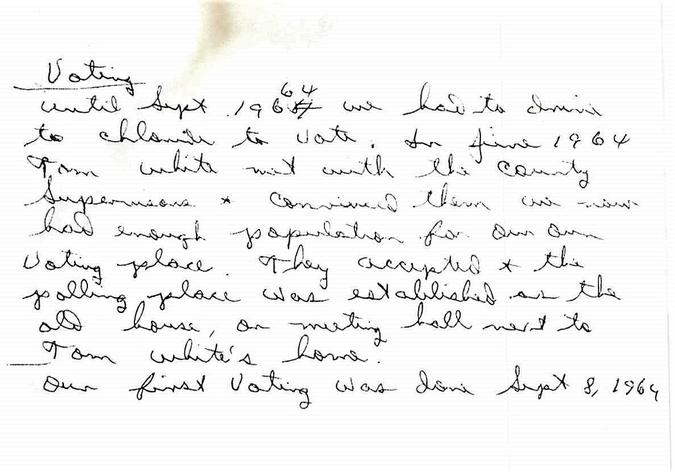 Voting
64
until Sept 196 we had to drive
to chloride to vote. In june 1964
Tom white met with the county
Supervisors + convinced them we now
had enough population for our own
Voting place. They accepted + the
polling place was established as the
old house, or meeting hall next to
Tom white's home.
Our first Voting was done Sept 8, 1964